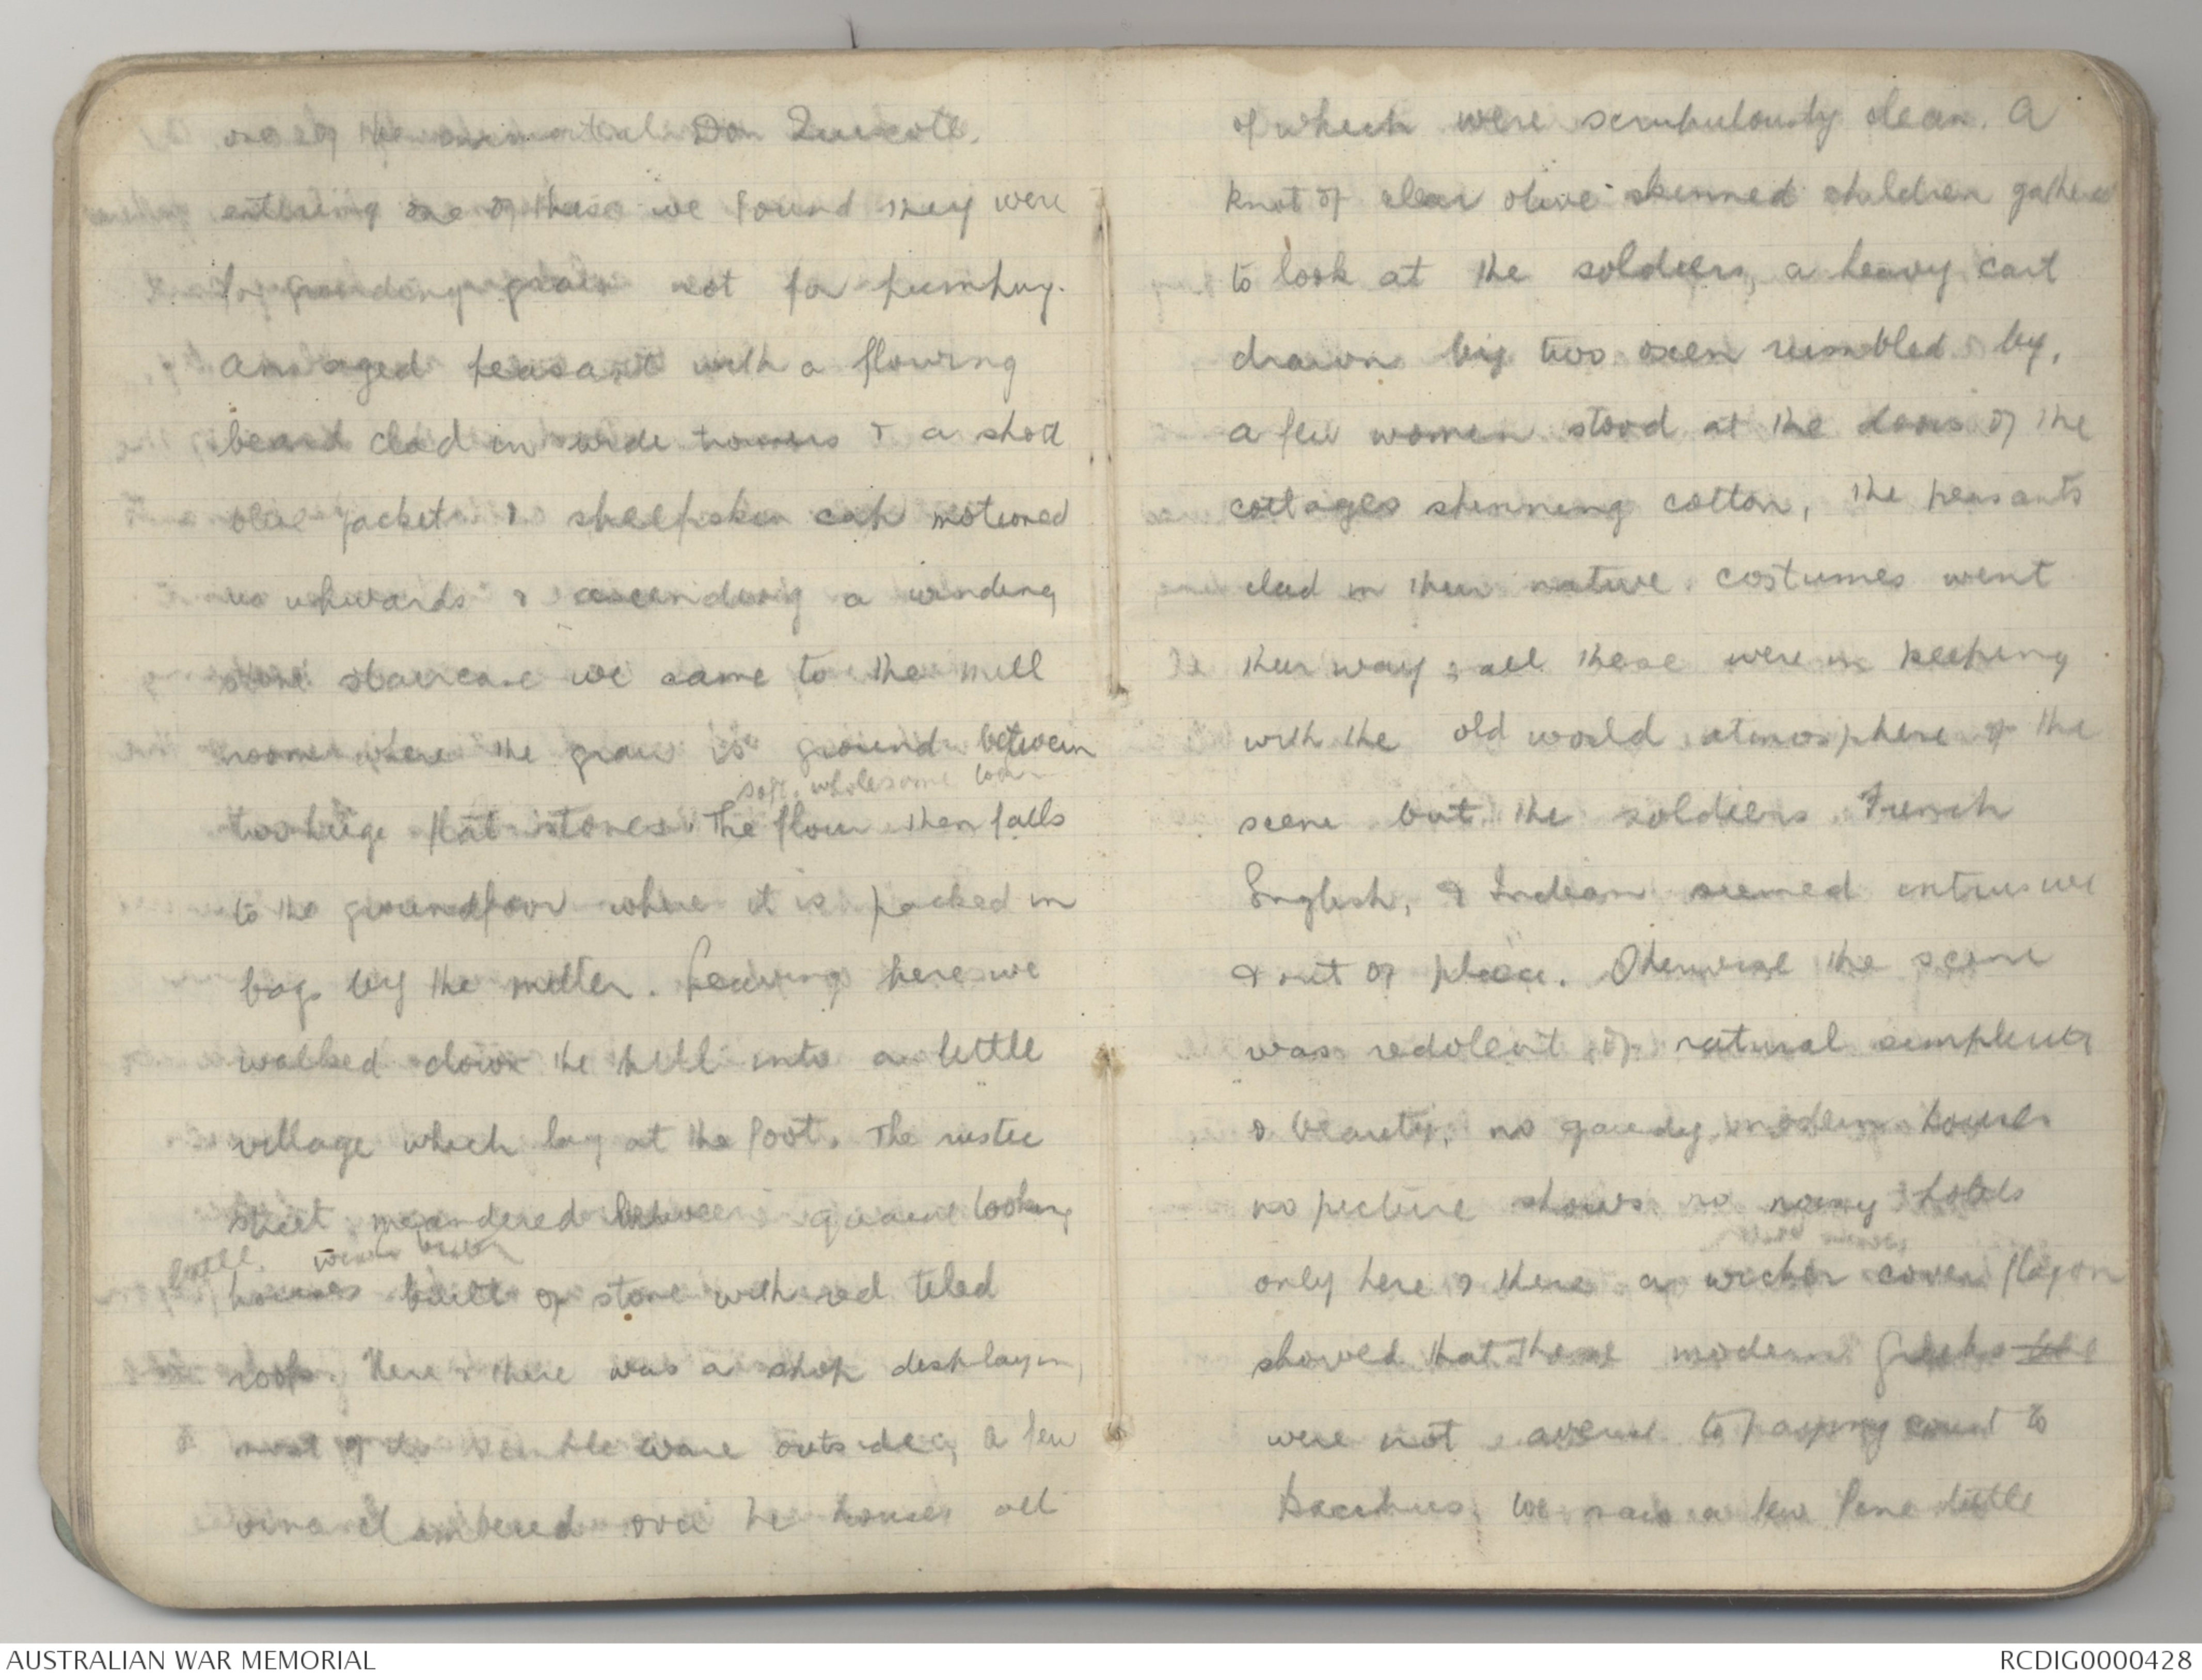 one of the immortal Don Quixote.
entering one of these we found they were
for grinding grain not for pumping.
An aged peasant with a flowing
beard clad in wide trousers & a short
blue jacket & sheepskin cap motioned
us upwards & ascending a winding
stone staircase we came to the mill
room where the grain is ground between
soft, wholesome
two huge flat stones. The flour then falls
to the groundfloor where it is packed in
bags by the miller. Leaving here we
walked down the hill into a little
village which lay at the foot. The rustic
street meandered between quaint looking
little
houses built of stone with red tiled
roofs. Here & there was a shop displaying
most of its humble ware outside, a few
vines clambered over the houses all
of which were scrupulously clean. A
knot of clear olive skinned children gathered
to look at the soldiers, a heavy cart
drawn by two oxen rumbled by,
a few women stood at the doors of the
cottages spinning cotton, the peasants
clad in their native costumes went
their way; all these were in keeping
with the old world atmosphere of the
scene but the soldiers French
English, & Indian seemed intrusive
& out of place. Otherwise the scene
was redolent of natural simplicity
& beauty, no gaudy modern houses
no picture shows no noisy hotels
only here & there a wicker cover flagon
showed that these modern Greeks
were not averse to paying court to
Bacchus. We saw a few fine little
AUSTRALIAN WAR MEMORIAL
RCDIG0000428